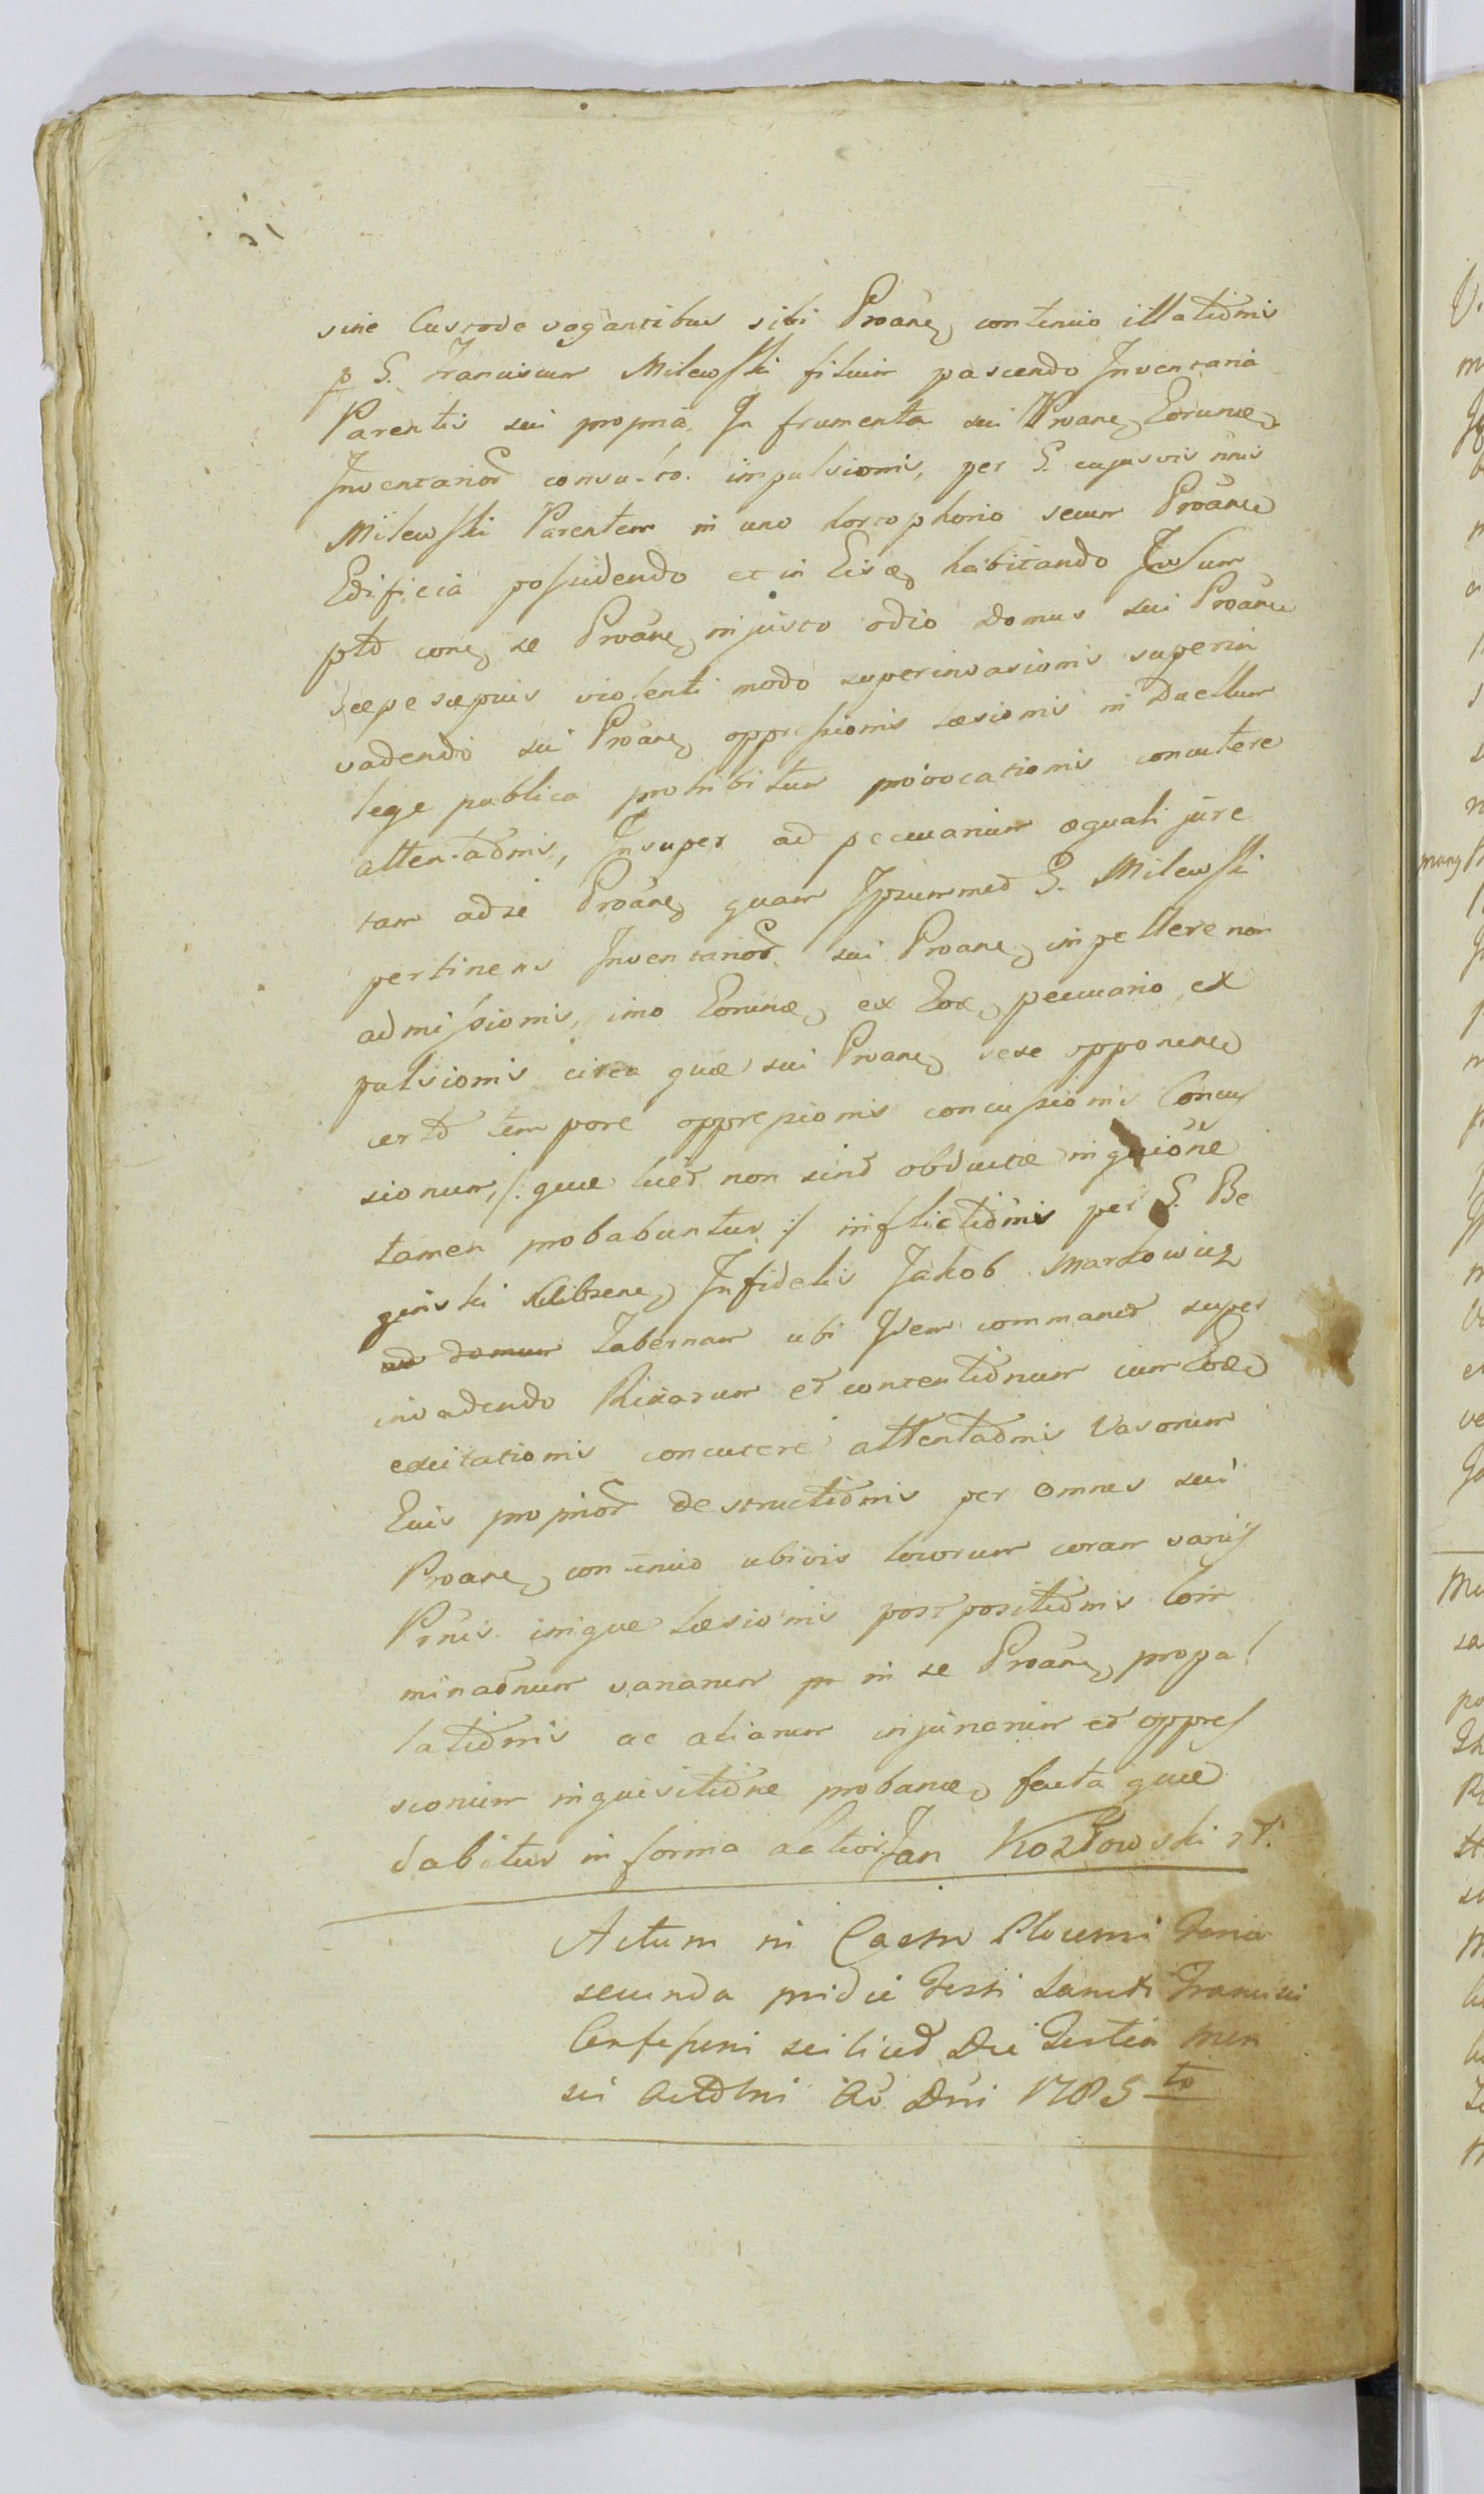 sine Custode vagantibus sibi Proãne, continuo illatiõnis
p G. Franciscum Milewski filium pascendo Inventaria
Parentis sui propria, In frumenta sui Proane, Eorumq,
Inventarioꝝ consulto impulsionis, per G. cujusvis nñis
Milewski Parentem in uno hortophorio secum Proãne
Edificia possidendo et in Eisq, habitando
ptõ se Proãne, injusto odio Domus sui Proãne
sæpe sæpius violenti modo superinvasionis superin
vadendo sui Proãne, oppressionis læsionis in Duellum
lege publica prohibitum provocationis concutere
attentaõnis, Insuper ad pecuarium æquali jure
tam ad se Proãne, quam Ipsummet G. Milewski
pertinens Inventarioꝝ sui Proane, impellere non
admissionis, imo Eorumq, ex Eoq, pecuario ex
pulsionis circa quæ sui Proane, sese opponene
certo tempore oppressionis concussionis Concus
sionum, /: quæ licet non sind obductæ inquiõne
tamen probabuntur :/ inflictiõnis per G. Be
Infidelis Jakob Markowicz
ad domum Tabernam ubi Idem commanet super
invadendo Rixarum et contentiõnum cum Eoq,
excitationis concutere attentaõnis Vasorum
Eius proprioꝝ destructiõnis per omnes sui
Proane, continuo ubivis locorum coram varijs
Pñis inique læsionis postpositiõnis Com
minaõnum variarum pr in se Proãne, propa
latiõnis ac aliarum injuriarum et oppres
sionum inquisitiõne probanæ, facta quæ
dabitur in forma Jan Kozłowski
Actum in Castro Plocensi Feria
secunda pridie Festi Sancti Francisci
Confessoris scilicet Die Tertia Men
sis Octobris Aõ Dñi 1785 to